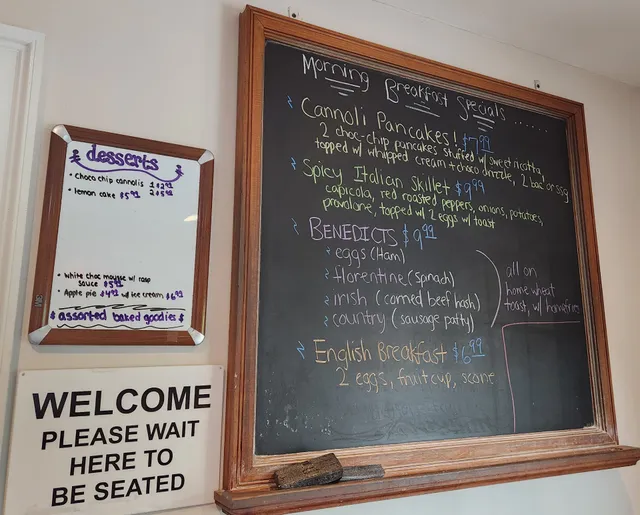 desserts
• choco chip cannolis 1 $2.99
2 $5.99
• lemon cake $5.99
• white choc mousse w/ rasp
sauce $5.99
• Apple pie $4.99 w/ ice cream $6.99
$ assorted baked goodies $
WELCOME
PLEASE WAIT
HERE TO
BE SEATED
Morning Breakfast Specials......
Cannoli Pancakes! $7.99
2 choc-chip pancakes stuffed w/ sweet ricotta,
topped w/ whipped cream + choco drizzle, 2 bac or ssg
Spicy Italian Skillet $9.99
capicola, red roasted peppers, onions, potatoes,
provolone, topped w/ 2 eggs w/ toast
BENEDICTS $9.99
eggs (Ham)
florentine (spinach)
irish (corned beef hash)
country (sausage patty)
all on
home wheat
toast, w/ homefries
English Breakfast $6.99
2 eggs, fruit cup, scone